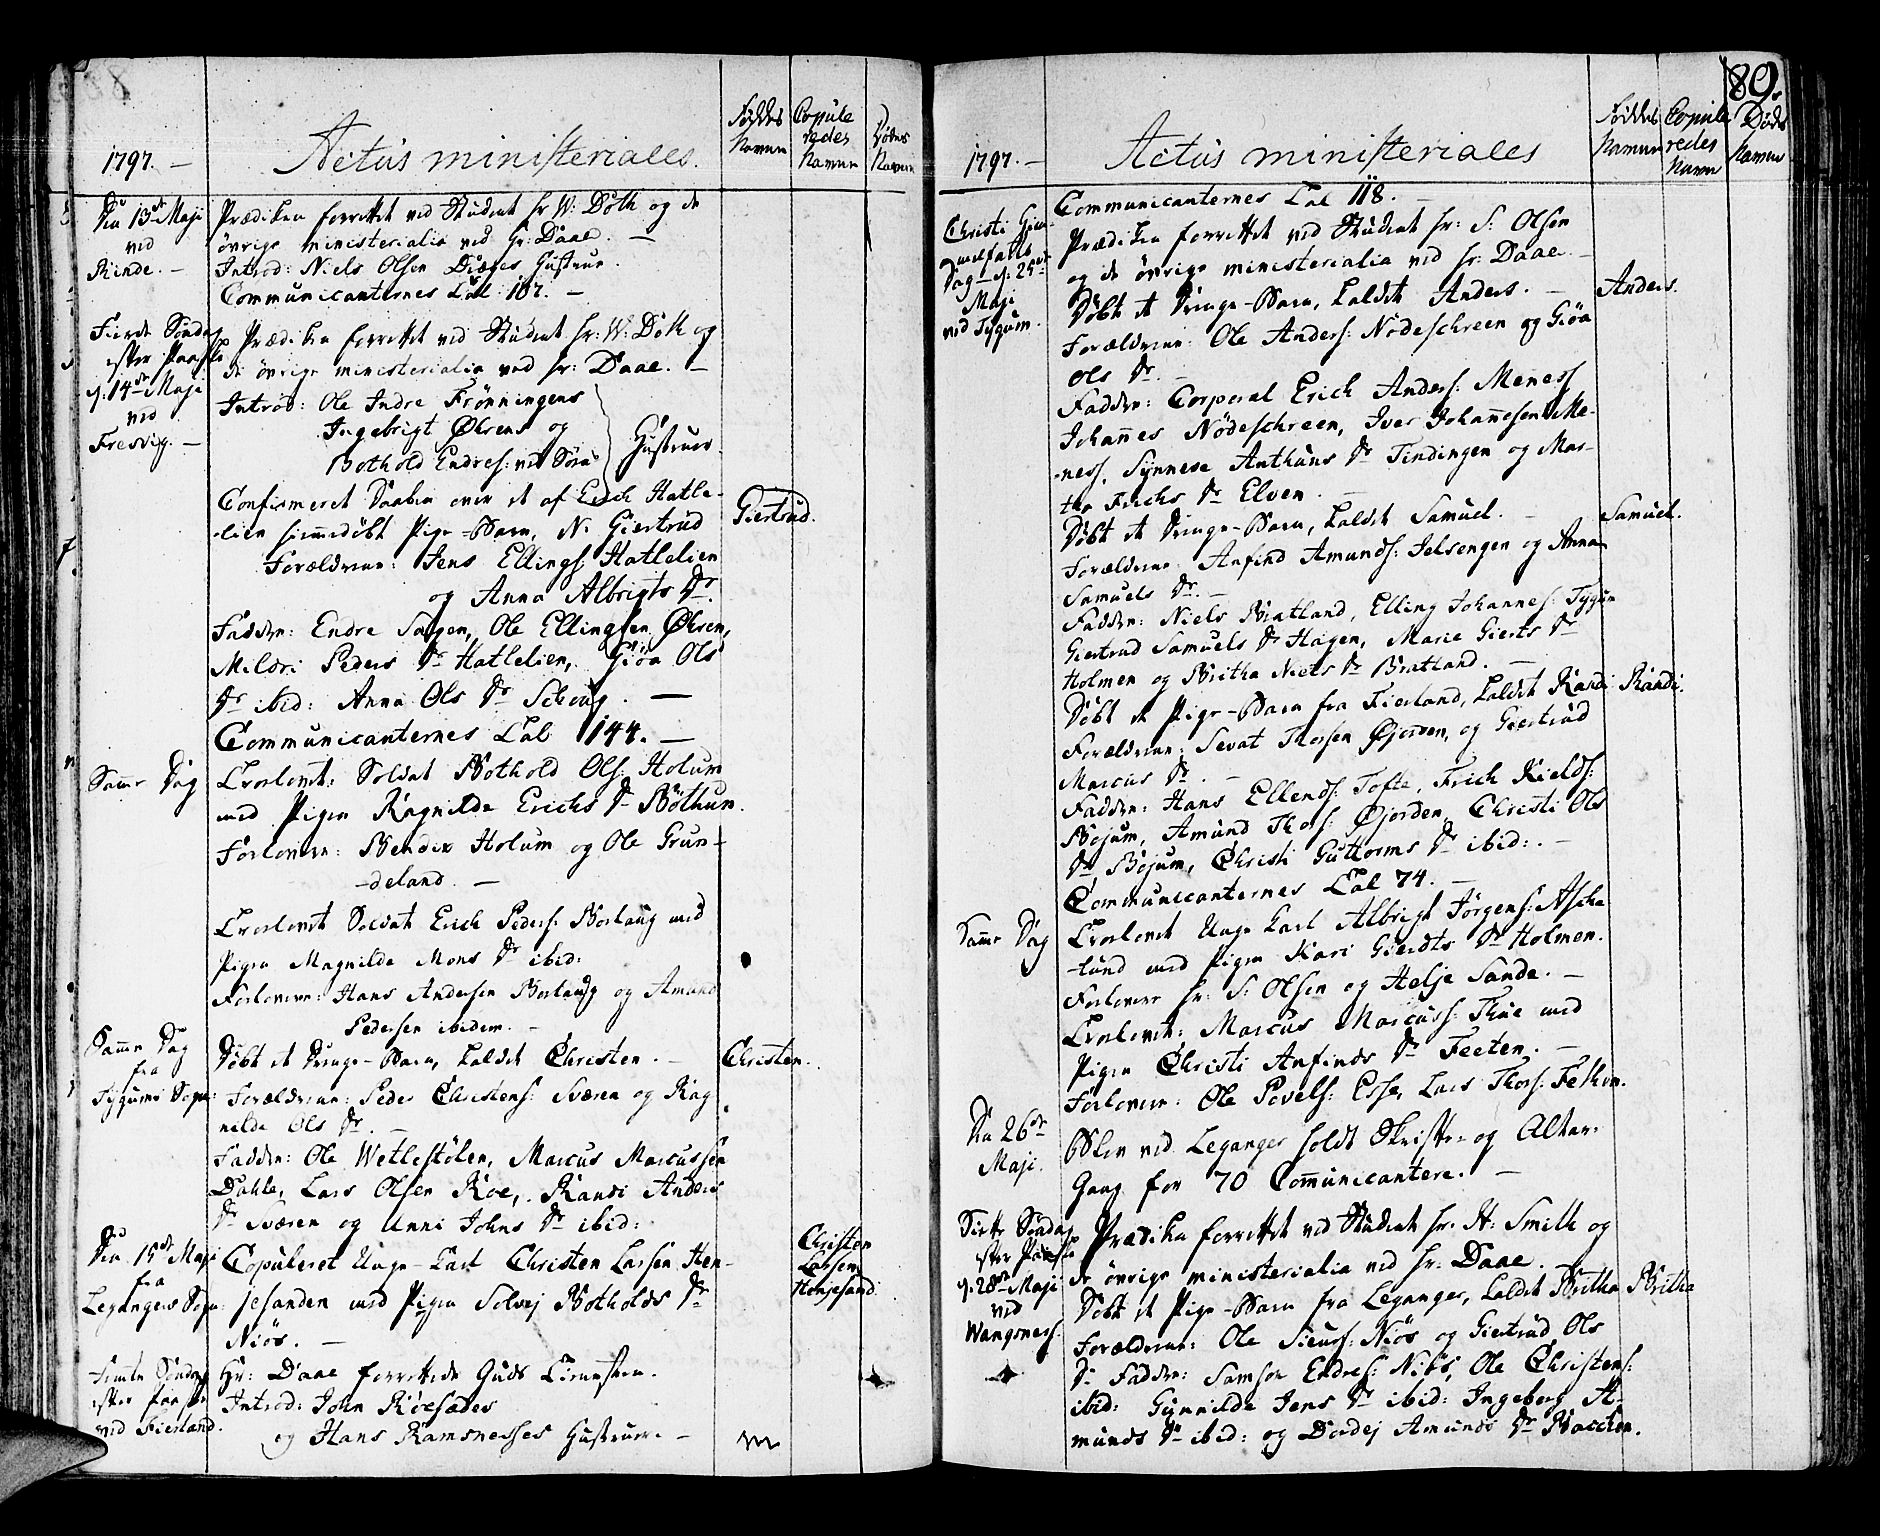 1797. —
Actus ministeriales.
Føddes Navne
Copule redes Navne
Dødes Navne
Den 13de Maji
ved
Rinde. —
Prædiken forrettet ved Student Hr W: Doth og de
øvrige ministerialia ved Hr: Daae. —
Introd: Niels Olsen Hustrue.
Communicanternes Tal 107. —
Fierde Søndag
efter Paaske
d: 14de Maji
ved
Fresvig. —
Prædiken forrettet ved Student Hr: W: Doth og
de øvrige ministerialia ved Hr: Daae. —
Introd: Ole Indre Frønningens
Ingebrigt Øhrens og
Bothold Endres: ved Søra
Hustruer.
Confirmeret Daaben over et af Erich Hatle-
-lien hiemmedøbt Pige-Barn, N. Giertrud
Giertrud.
Forældrene: Jens Ellings: Hatlelien
og Anna Albrigts Dr.
Faddere: Endre Salgen, Ole Ellingsen Øhren,
Mildri Peders Dr Hatlelien, Giøa Ols
Dr ibid: Anna Ols Dr —
Communicanternes Tal 144. —
Samme Dag
Trolovet: Soldat Bothold Ols: Holum
med Pigen Ragnilde Erichs Dr Bøthun.
Forlovere: Bendix Holum og Ole Grun-
-deland. —
Trolovet Soldat Erich Peders: Borlaug med
Pigen Magnilde Mons Dr ibid:
Forlovere: Hans Andersen Borlaug og Amund
Pedersen ibidem. —
Samme Dag
fra
Tygums Sogn:
Døbt et Drenge-Barn, kaldet Christen. —
Christen.
Forældrene: Peder Christens: Sværen og Rag
nilde Ols Dr. —
Faddere: Ole Wetlestølen, Marcus Marcussen
Dahle, Lars Olsen Roe, Randi Anders
Dr Sværen og Unni Johns Dr ibid:
Den 15de Maji
fra
Legangers Sogn:
Copuleret Unge-Karl Christen Larsen Hen-
jesanden med Pigen Solvej Botholds Dr
Niøs. —
Christen
Larsen
Henjesand.
Femte Søndag
efter Paaske
ved Fierland.
Hr: Daae forrettede Guds Tienesten.
Introd: John Røesætes
og Hans Ramsnesses Hustruer. —
89.
1797. —
Actus ministeriales
Føddes Navne
Copule redes Navne
Døde Navne
Communicanternes Tal 118. —
Christi Him-
melfarts
Dag — d: 25de
Maji
ved Tygum.
Prædiken forrettet ved Student Hr: S: Olsen
og de øvrige ministerialia ved Hr: Daae. —
Døbt et Drenge-Barn, kaldet Anders. —
Anders.
Forældrene: Ole Anders: Nødeschreen og Giøa
Ols Dr. —
Faddere: Corporal Erich Anders: Meness
Johannes Nødeschreen, Iver Johannesen Me-
-ness, Synneve Anthuns Dr Tindingen og Mar-
tha Erichs Dr Elven. —
Døbt et Drenge-Barn, kaldet Samuel. —
Samuel.
Forældrene Anfind Amunds: Jelsengen og Anna
Samuels Dr. —
Faddere: Niels Bratland, Elling Johannes: Tygum
Giertrud Samuels Dr Hagen, Marie Gierts Dr
Holmen og Britha Niels Dr Bratland. —
Døbt et Pige-Barn fra Fierland, kaldet Randi
Randi.
Forældrene: Sevat Thorsen Øjorden, og Giertrud
Marcus Dr. —
Faddere: Hans Ellends: Tofte, Erich Kields:
Bojum, Amund Thors: Øjorden, Christi Ols
Dr Bojum, Christi Guttorms Dr ibid: —
Communicanternes Tal 74. —
Samme Dag
Trolovet Unge Karl Albrigt Jørgens: Asche
-lund med Pigen Kari Gierdts Dr Holmen.
Forlovere Hr: S: Olsen og Helje Sande. —
Trolovet: Marcus Marcuss: Thue med
Pigen Christi Anfinds Dr Feeten. —
Forlovere: Ole Povels: Esse, Lars Thors: Fethen.
Den 26de
Maji.
Blev ved Leganger holdt Skrifte- og Altar-
Gang for 70 Communicantere. —
Siette Søndag
efter Paaske
d: 28de Maji
ved
Wangsness.
Prædiken forrettet ved Student Hr. H: Smith og
de øvrige ministerialia ved Hr: Daae.
Døbt et Pige-Barn fra Leganger, kaldet Britha
Britha
Forældrene: Ole Sieurs: Niøs og Giertrud Ols
Dr Faddere: Samson Endres: Niøs, Ole Christens:
ibid: Gunnilde Jens Dr ibid: Ingeborg A-
munds Dr ibid: og Dordej Amunds Dr Bacchen.